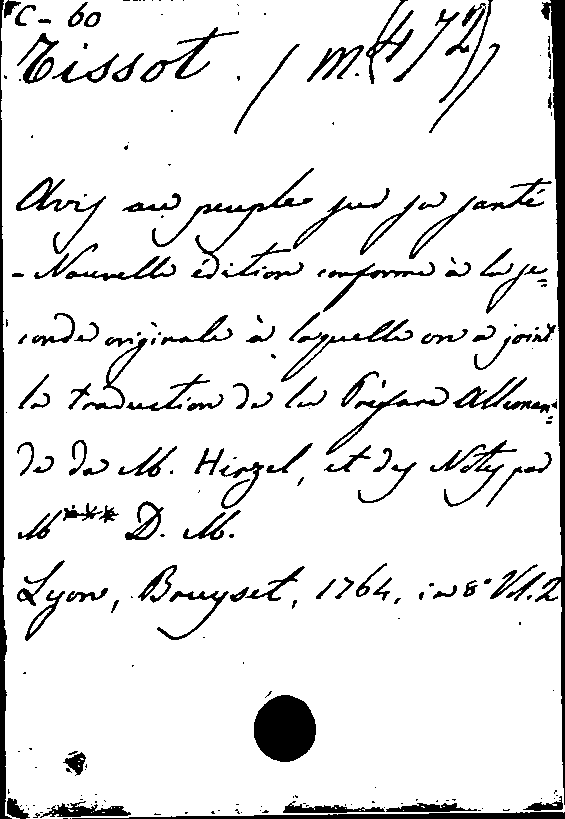 C - 60
Tissot. (M. (472))
Avis au peuple sur sa santé
- Nouvelle édition conforme à la se=
conde originale à laquelle on a joint
la traduction de la Préface Alleman=
de de M. Hirzel, et des Notes par
M*** D. M.
Lyon, Bruyset, 1764, in 8° Vol. 2